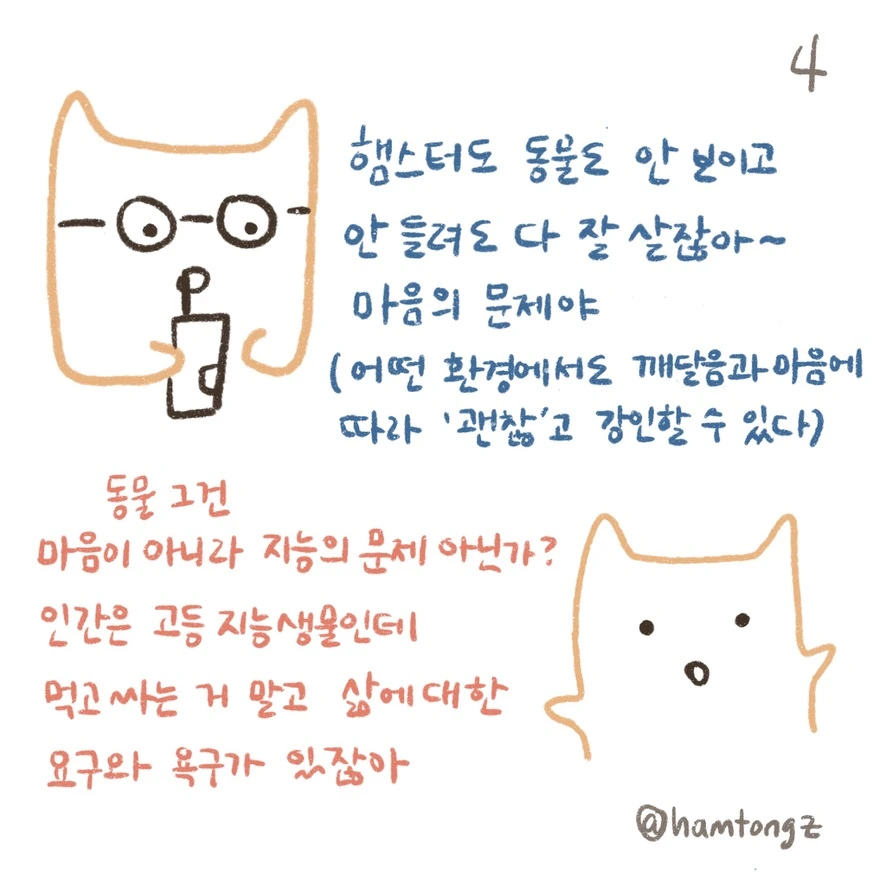 4
햄스터도 동물도 안 보이고
안 들려도 다 잘 살잖아~
마음의 문제야
(어떤 환경에서도 깨달음과 마음에
따라 '괜찮'고 강인할 수 있다)
동물 그건
마음이 아니라 지능의 문제 아닌가?
인간은 고등 지능생물인데
먹고 싸는 거 말고 삶에 대한
요구와 욕구가 있잖아
@hamtongz